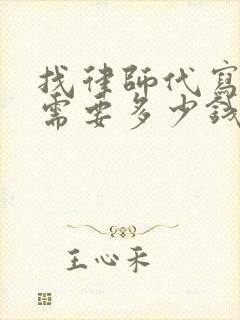 找律師代寫
需要多少錢
王心禾